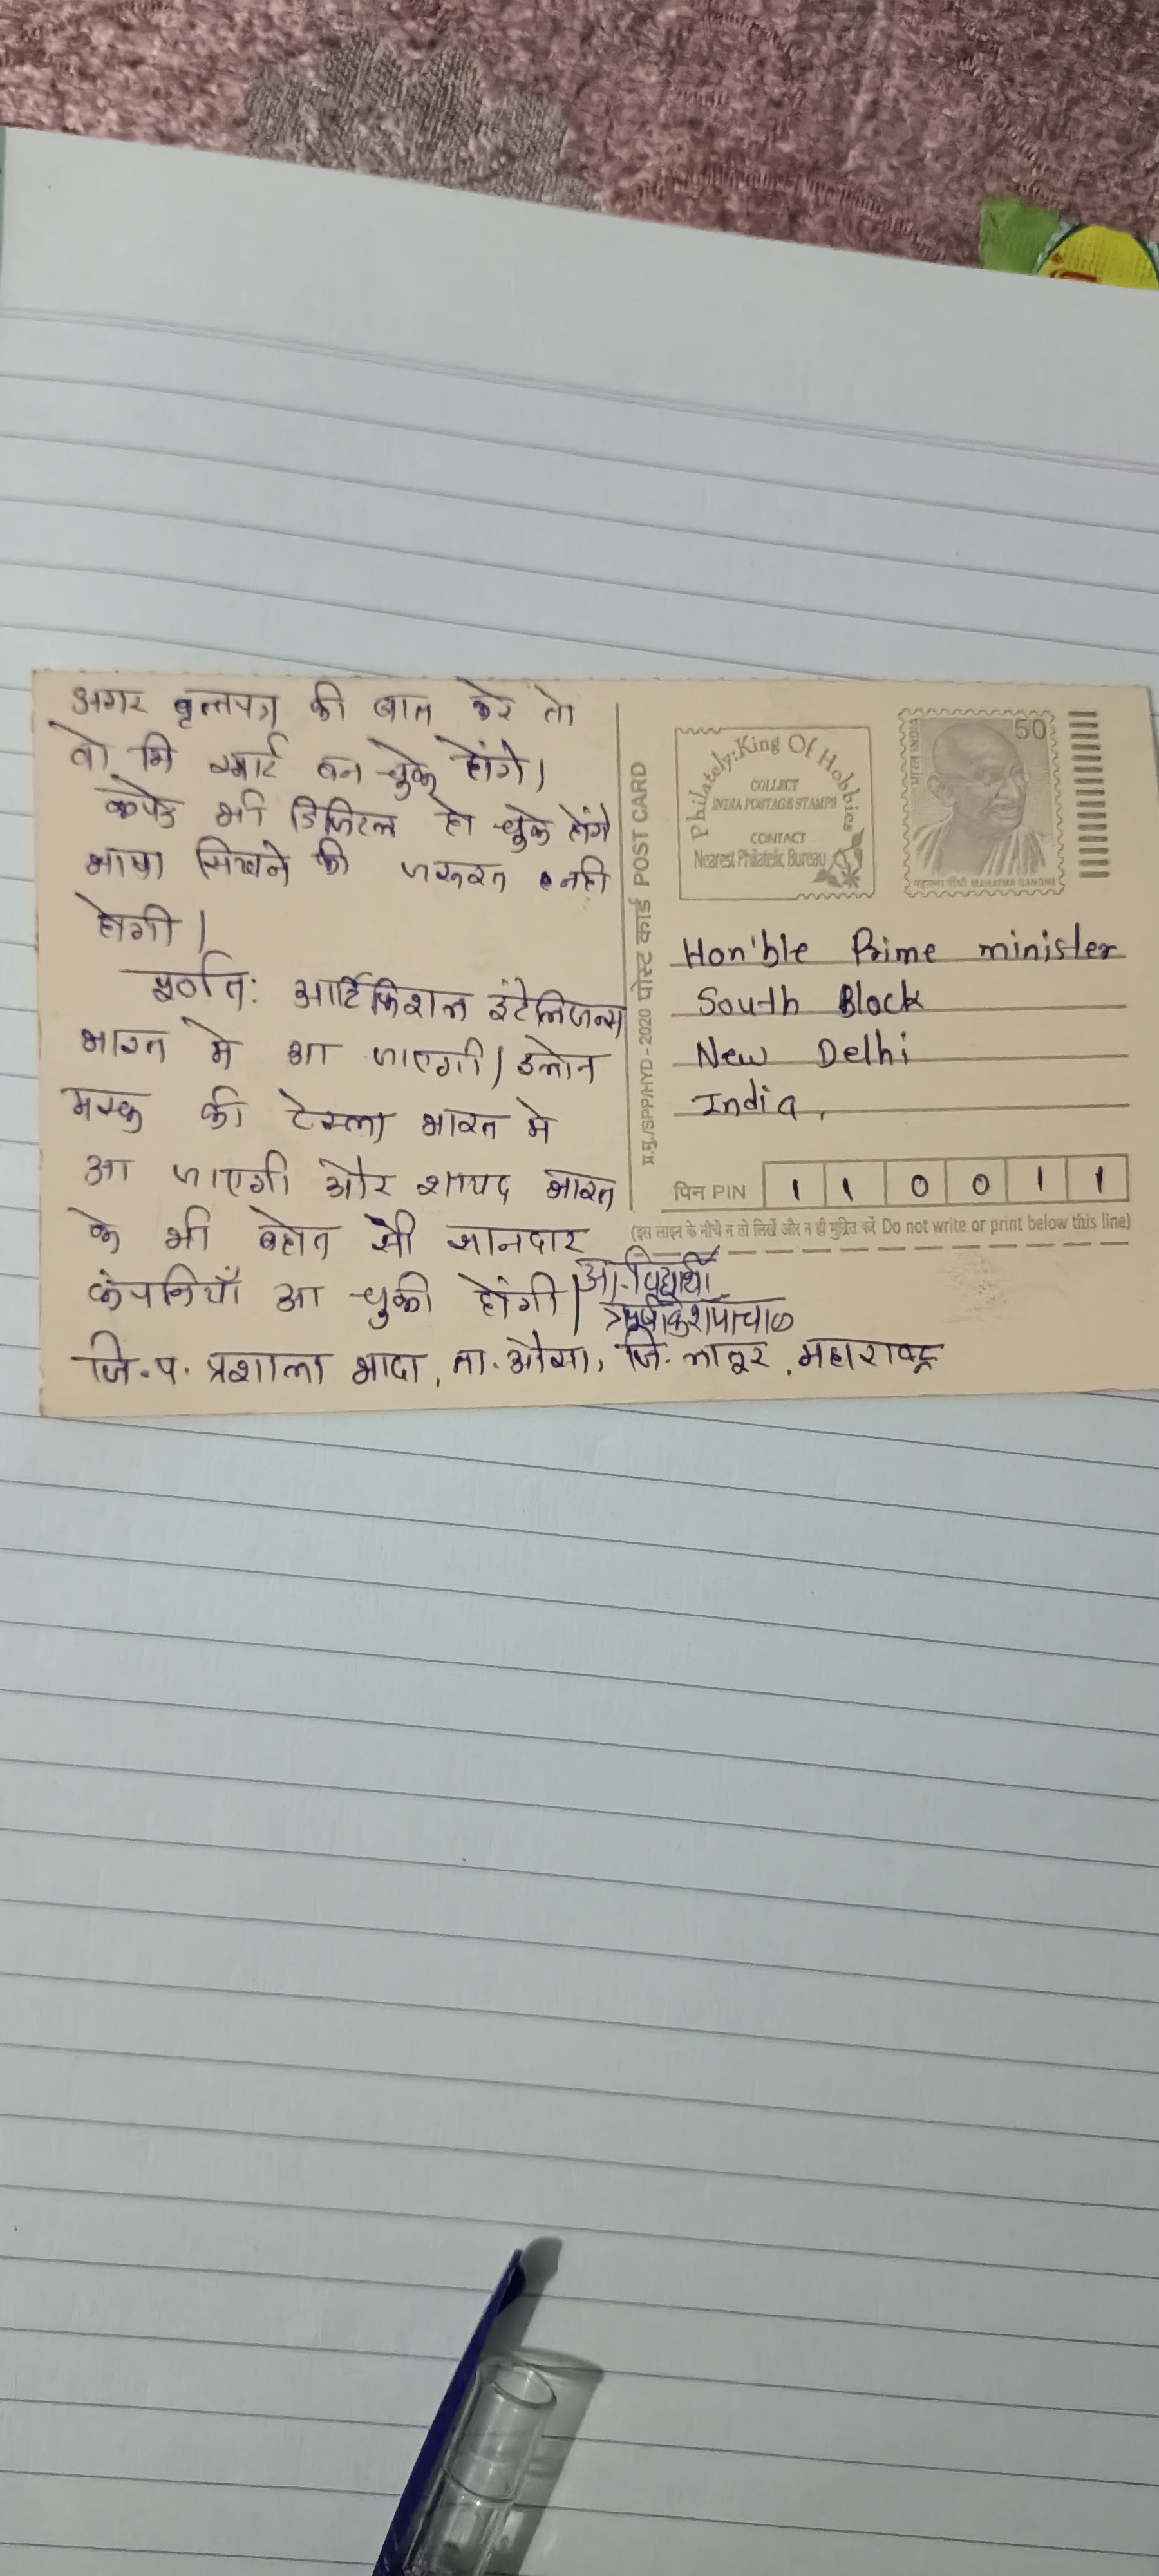 अगर वृत्तपत्र की बात करे तो
वो भि स्मार्ट बन चुके होंगे।
कपडे भी डिजिटल हो चुके होंगे
भाषा सिखने की जरूरत नही
होगी।
आर्टिफिशल इंटेलिजन्स
भारत मे आ जाएगी। इलोन
मस्क की टेस्ला भारत मे
आ जाएगी और शायद भारत
के भी बहोत सी शानदार
कंपनियाँ आ चुकी होंगी।
आ. विद्यार्थी
जि.प. प्रशाला भादा, ता. औसा, जि. लातूर, महाराष्ट्र
प्र.मु./SPP/HYD - 2020 पोस्ट कार्ड POST CARD
Philately: King Of Hobbies
COLLECT
INDIA POSTAGE STAMPS
CONTACT
Nearest Philatelic Bureau
50
भारत INDIA
महात्मा गाँधी MAHATMA GANDHI
Hon'ble Prime minister
South Block
New Delhi
India,
पिन PIN 1 1 0 0 1 1
(इस लाइन के नीचे न तो लिखें और न ही मुद्रित करें Do not write or print below this line)